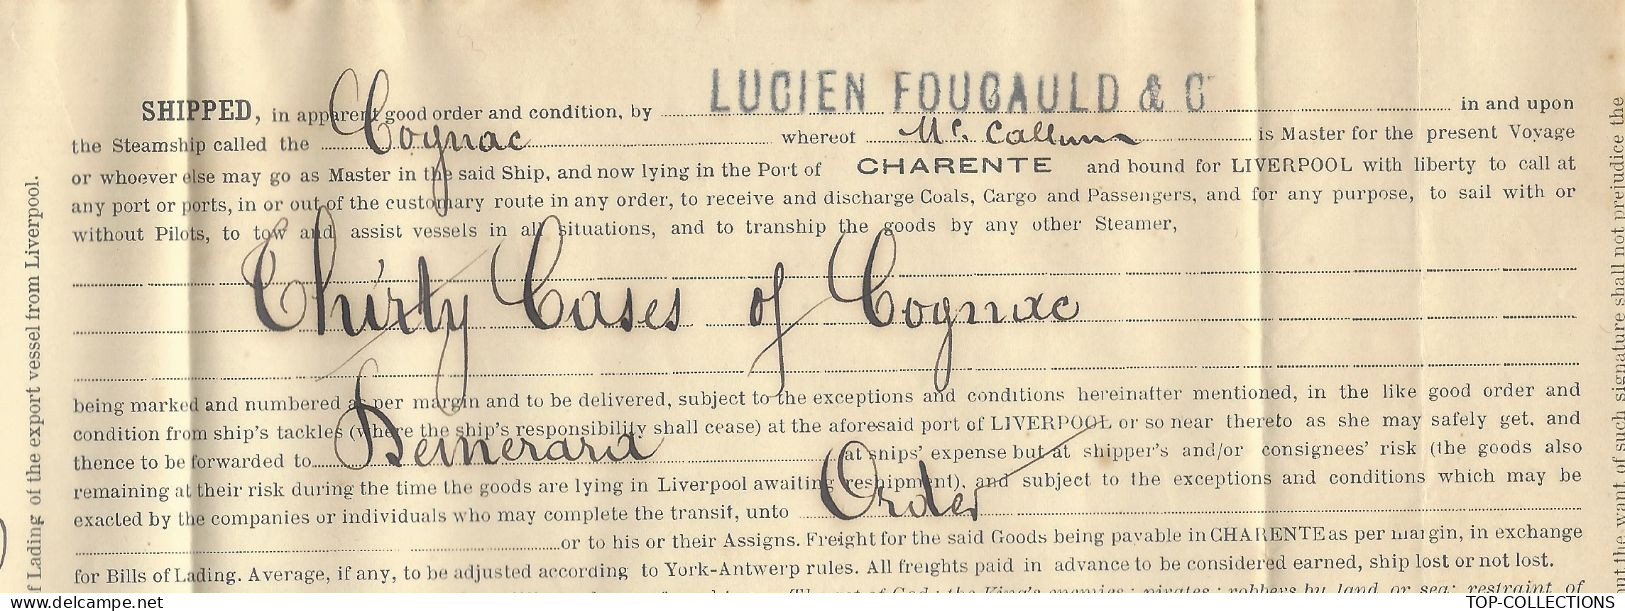 SHIPPED, in apparent good order and condition, by LUCIEN FOUCAULD & C in and upon
the Steamship called the Cognac whereot Mc. Callum is Master for the present Voyage
or whoever else may go as Master in the said Ship, and now lying in the Port of CHARENTE and bound for LIVERPOOL with liberty to call at
any port or ports, in or out of the customary route in any order, to receive and discharge Coals, Cargo and Passengers, and for any purpose, to sail with or
without Pilots, to tow and assist vessels in all situations, and to tranship the goods by any other Steamer,
Thirty Cases of Cognac
being marked and numbered as per margin and to be delivered, subject to the exceptions and conditions hereinafter mentioned, in the like good order and
condition from ship's tackles (where the ship's responsibility shall cease) at the aforesaid port of LIVERPOOL or so near thereto as she may safely get, and
thence to be forwarded to Demerara at ships' expense but at shipper's and/or consignees' risk (the goods also
remaining at their risk during the time the goods are lying in Liverpool awaiting reshipment), and subject to the exceptions and conditions which may be
exacted by the companies or individuals who may complete the transit, unto Order
or to his or their Assigns. Freight for the said Goods being payable in CHARENTE as per margin, in exchange
for Bills of Lading. Average, if any, to be adjusted according to York-Antwerp rules. All freights paid in advance to be considered earned, ship lost or not lost.
The act of God; the King's enemies; pirates; robbers by land or sea; restraint of
f Lading of the export vessel from Liverpool.
the want of such signature shall not prejudice the
TOP-COLLECTIONS